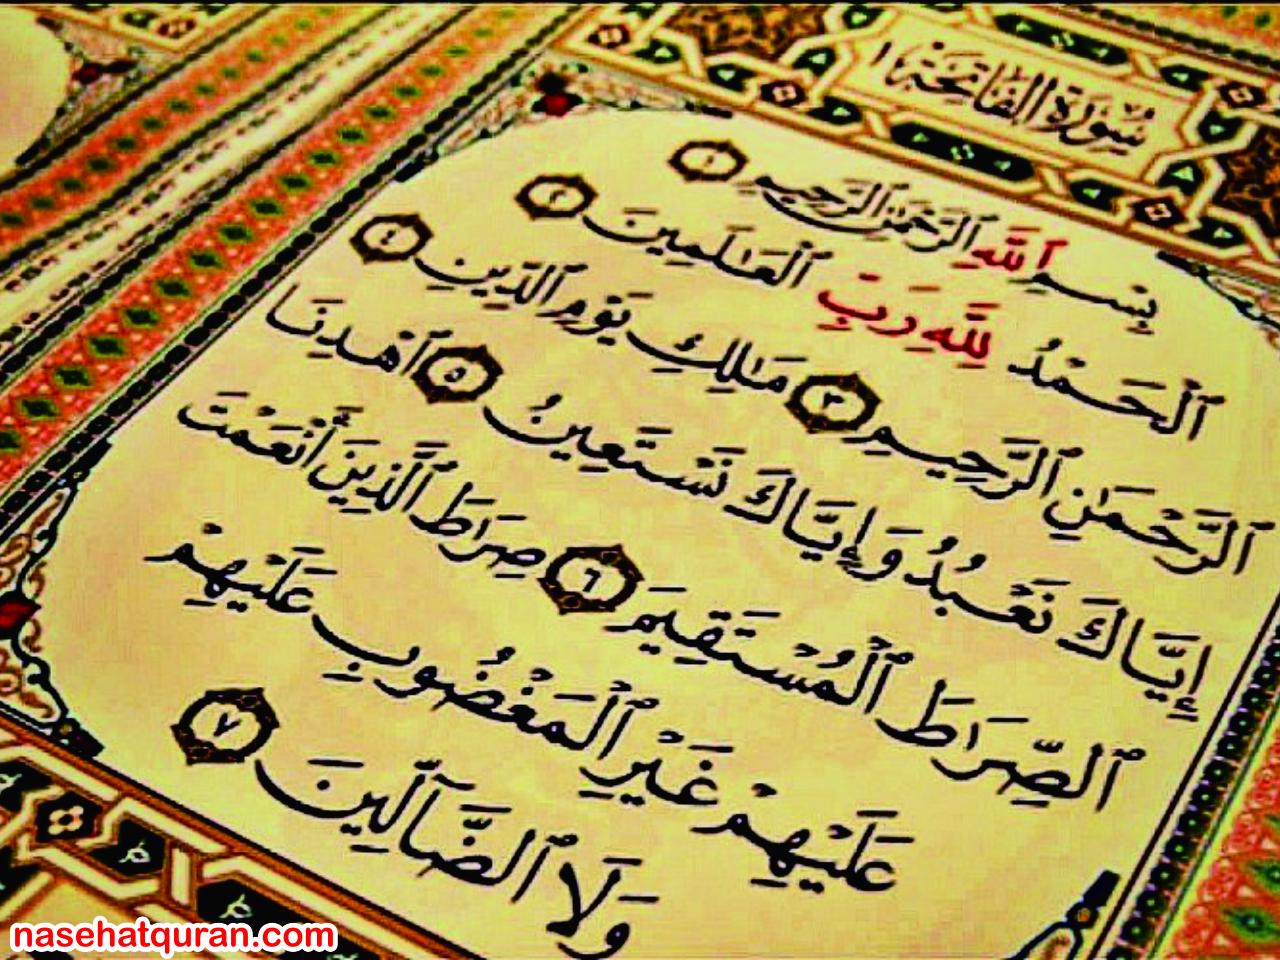 سُورَةُ الْفَاتِحَةِ ١
بِسْمِ ٱللَّهِ ٱلرَّحْمَٰنِ ٱلرَّحِيمِ ١
ٱلْحَمْدُ لِلَّهِ رَبِّ ٱلْعَٰلَمِينَ ٢
ٱلرَّحْمَٰنِ ٱلرَّحِيمِ ٣ مَٰلِكِ يَوْمِ ٱلدِّينِ ٤
إِيَّاكَ نَعْبُدُ وَإِيَّاكَ نَسْتَعِينُ ٥ ٱهْدِنَا
ٱلصِّرَٰطَ ٱلْمُسْتَقِيمَ ٦ صِرَٰطَ ٱلَّذِينَ أَنْعَمْتَ
عَلَيْهِمْ غَيْرِ ٱلْمَغْضُوبِ عَلَيْهِمْ
وَلَا ٱلضَّآلِّينَ ٧
nasehatquran.com